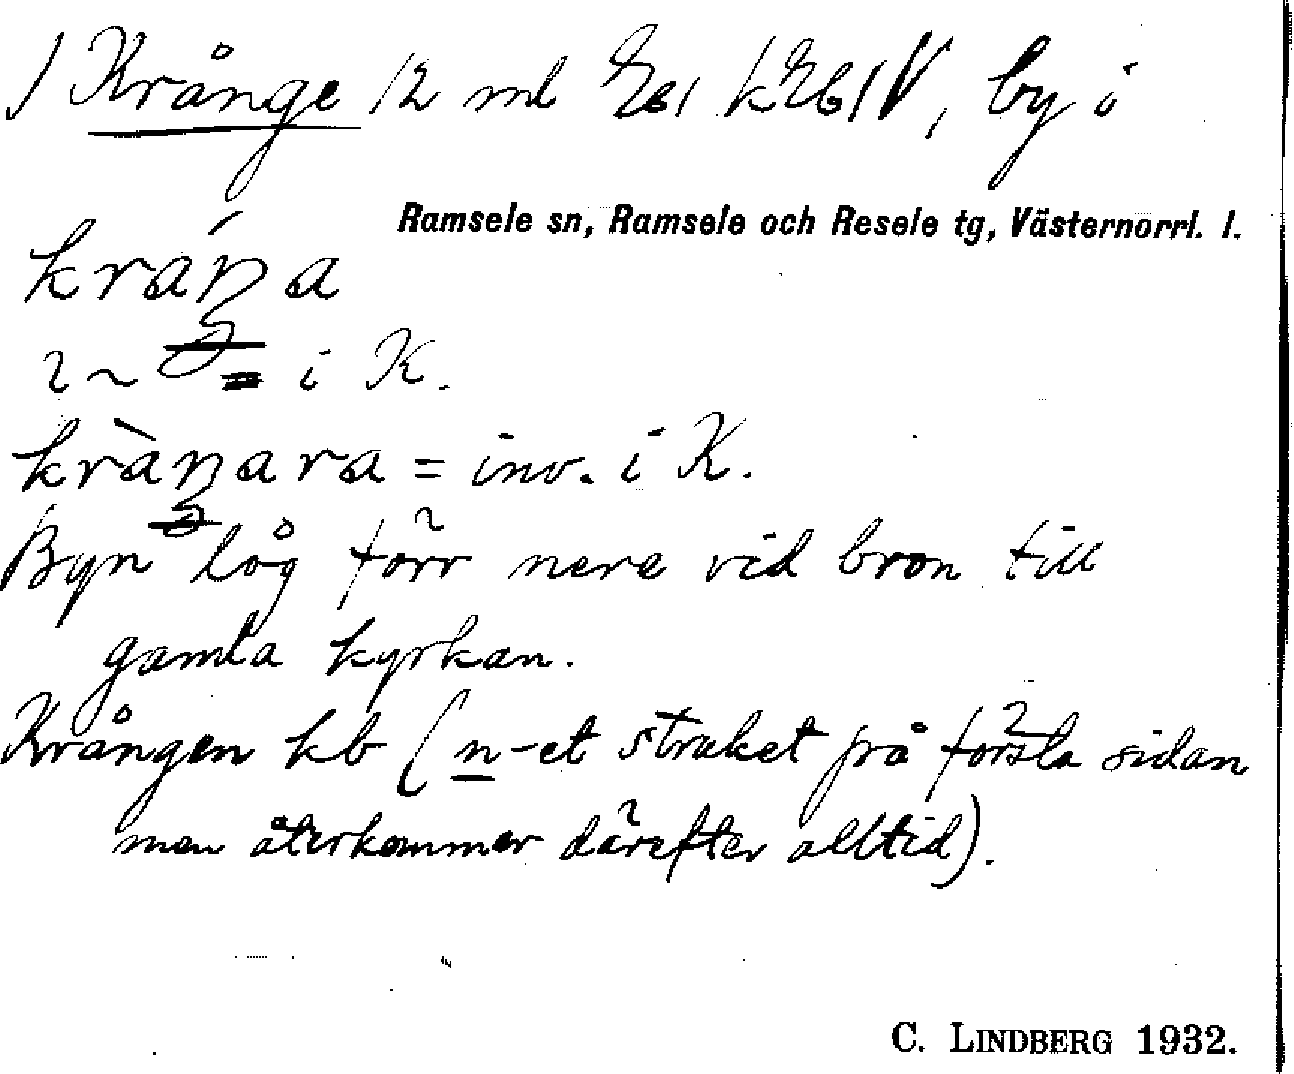 1 Krånge 12 ml by i
Ramsele sn, Ramsele och Resele tg, Västernorrl. l.
i K.
= inv. i K.
Byn låg förr nere vid bron till
gamla kyrkan.
Krången kb (n-et struket på första sidan
men återkommer därefter alltid).
C. LINDBERG 1932.